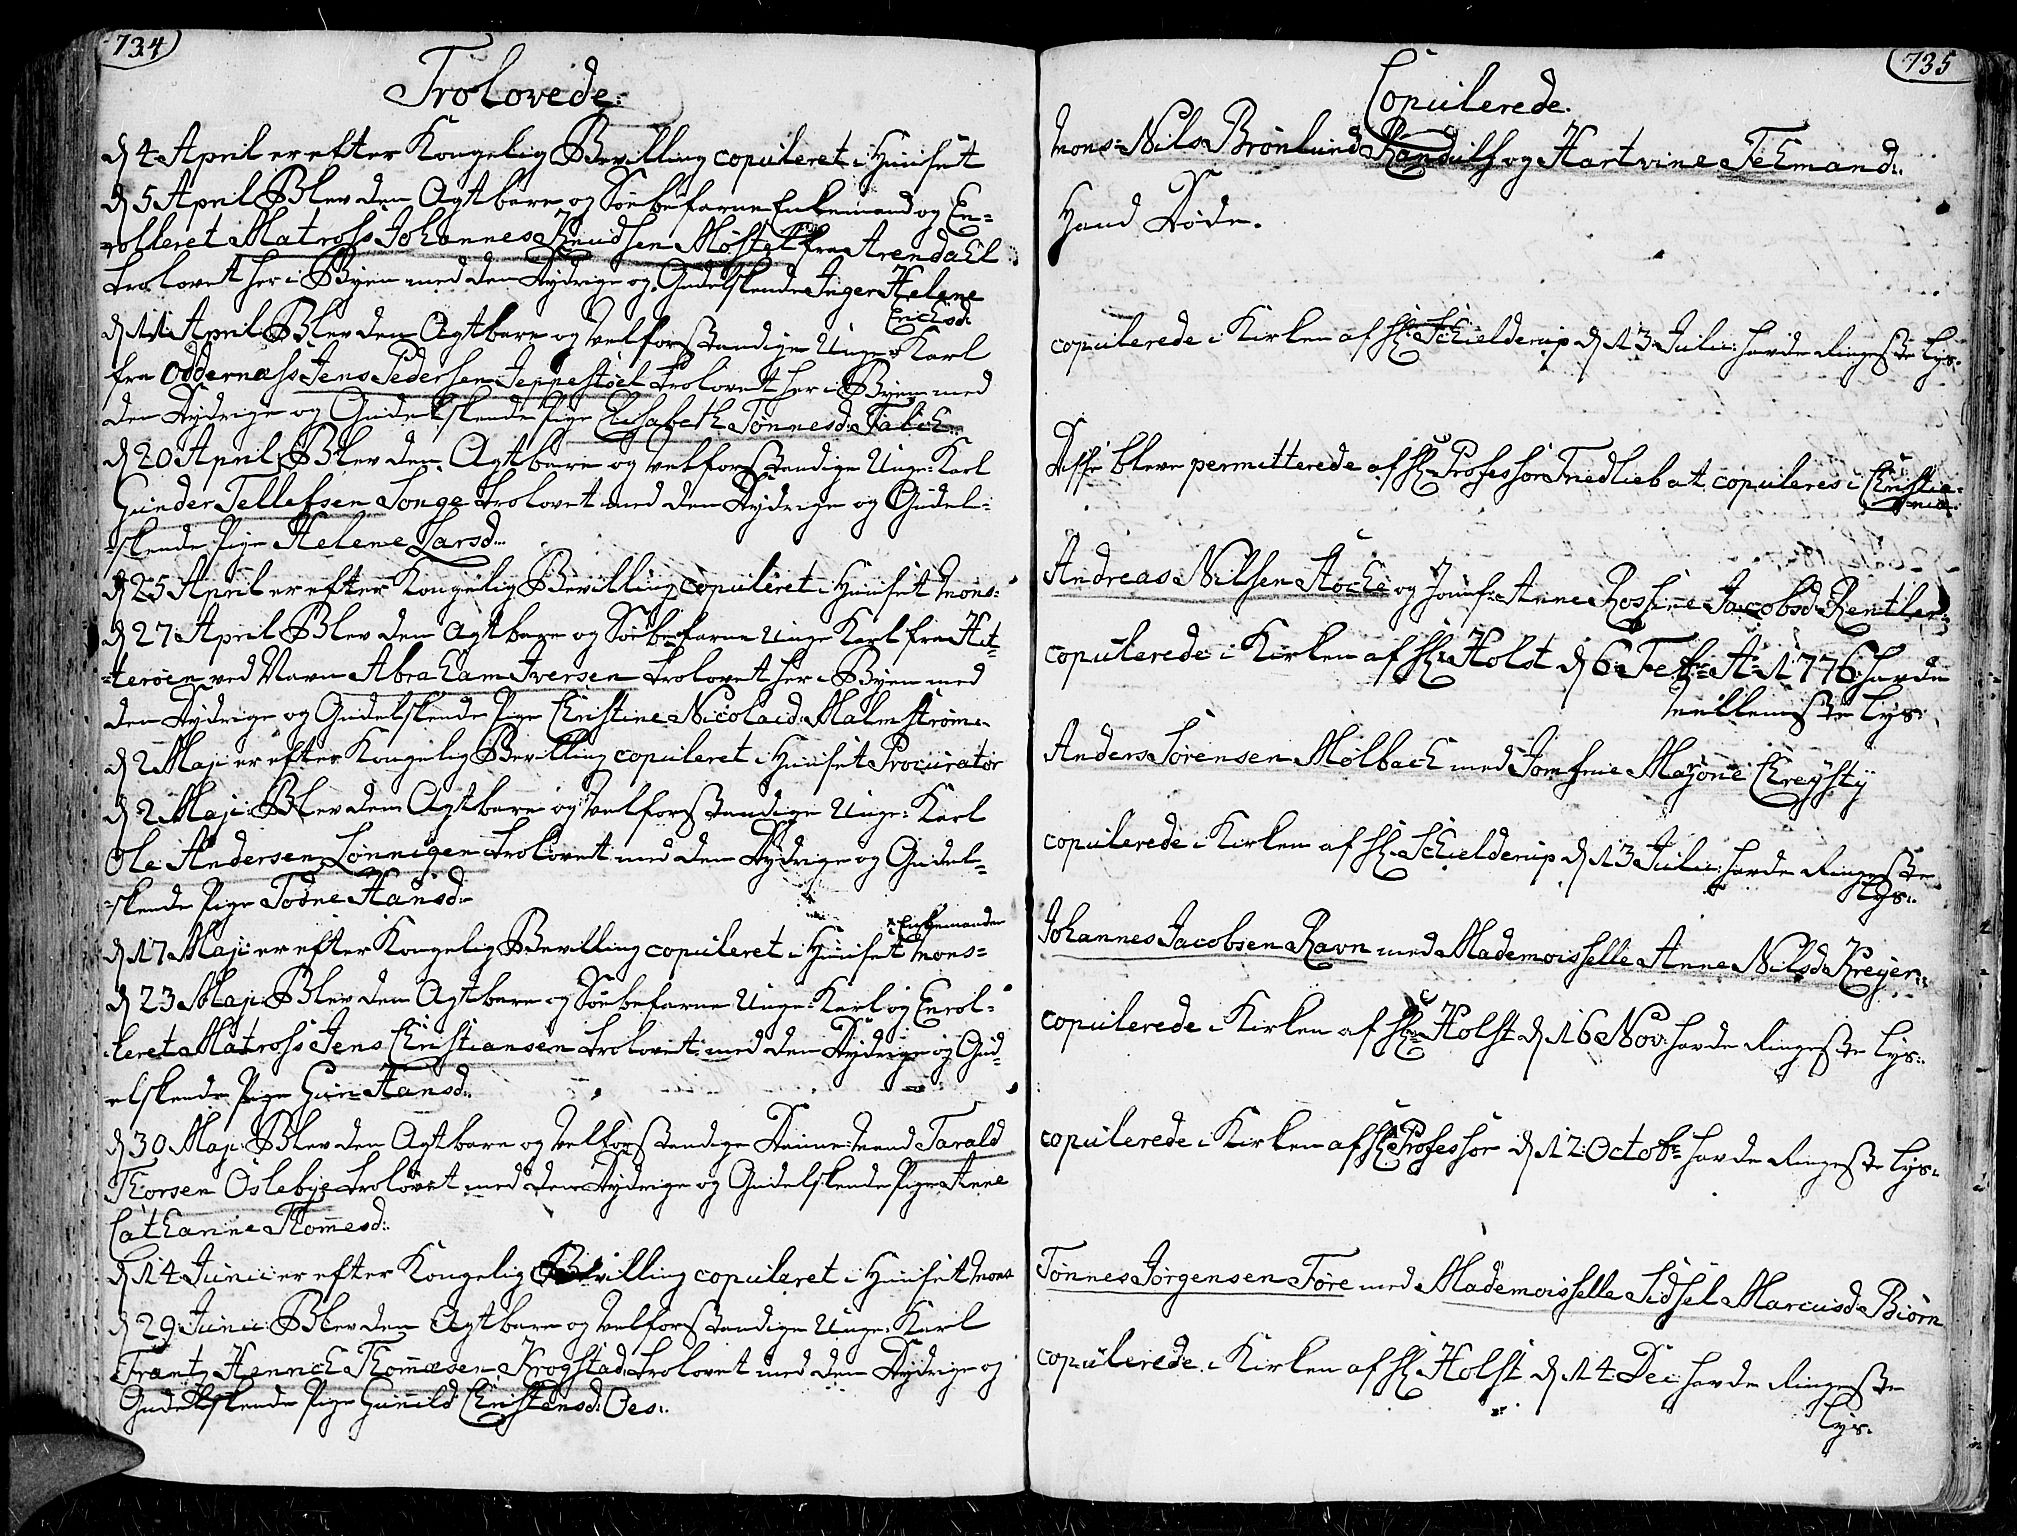 734
Trolovede:
d 4 April er efter Kongelig Bevilling copuleret i Huuset
d 5 April Blev den Agtbare og Søebefarne Enkemand og En-
rolleret Matross Johannes Knudsen Møstel fra Arendahl
trolovet her i Byen med den Dydrige og Gudelskende Inger Helene
Erichsd:
d 11 April Blev den Agtbare og velforstandige Unge Karl
fra Oddernæss Jens Pedersen Jeppestøel trolovet her i Byen med
den Dydrige og Gudelskende Pige Elisabeth Tønnesd: Falch.
d 20 April Blev den Agtbare og velforstandige Unge Karl
Gunder Tellefsen Songe trolovet med den Dydrige og Gudel-
skende Pige Helene Larsd:
d 25 April er efter Kongelig Bevilling copuleret i Huuset Mons:
d 27 April Blev den Agtbare og Søebefarne Unge Karl fra Hit-
terøen ved Navn Abraham Iversen trolovet her i Byen med
den Dydrige og Gudelskende Pige Christine Nicolaid: Malmstrøm.
d 2 Maji er efter Kongelig Bevilling copuleret i Huuset Procurator
d 2 Maji Blev den Agtbare og velforstandige Unge Karl
Ole Andersen Lønnigen trolovet med den Dydrige og Gudel-
skende Pige Todne Hansd:
Enkemanden
d 17 Maji er efter Kongelig Bevilling copuleret i Huuset Mons-
d 23 Maji Blev den Agtbare og Søebefarne Unge Karl og Enrol-
leret Matross Jens Christiansen trolovet med den Dydrige og Gud-
elskende Pige Gun Hansd:
d 30 Maji Blev den Agtbare og velforstandige Danne Mand Tarald
Thorsen Oslebye trolovet med den Dydrige og Gudelskende Pige Anne
Cathanine Thomesd:
d 14 Junii er efter Kongelig Bevilling copuleret i Huuset Mons
d 29 Junii Blev den Agtbare og velforstandige Unge Karl
Frantz Henrich Thomæsen Krogstad trolovet med den Dydrige og
Gudelskende Pige Gunild Christensd: Oes.
735
Copulerede.
Mons: Nils Brønlund Randulf og Hartvine Fehmand:
Hand Døde.
copulerede i Kirken af Hr: Schielderup d 13 Julii: havde Ringeste Lys.
Disse bleve permitterede af Hr: Professor Friedlieb at copuleres i Christia-
nia:
Andreas Nilsen Høche og Jomf: Anne Rossine Jacobsd: Rentler
copulerede i Kirken af Hr: Holst d 6 Febr: A: 1776 havde
mellemste Lys:
Anders Sørensen Mølbach med Jomfrue Marone Chreysty
copulerede i Kirken af Hr: Schielderup d 13 Julii: havde Ringeste
Lys:
Johannes Jacobsen Ravn med Mademoisselle Anne Nilsd: Kreyer:
copulerede i Kirken af Hr: Holst d 16 Nov: havde Ringeste Lys:
copulerede i Kirken af Hr: Professor d 12 Octobr: havde Ringeste Lys.
Tønnes Jørgensen Føre med Mademoisselle Sidsel Marcusd: Biørn
copulerede i Kirken af Hr: Holst d 14 Dec: havde Ringeste
Lys.